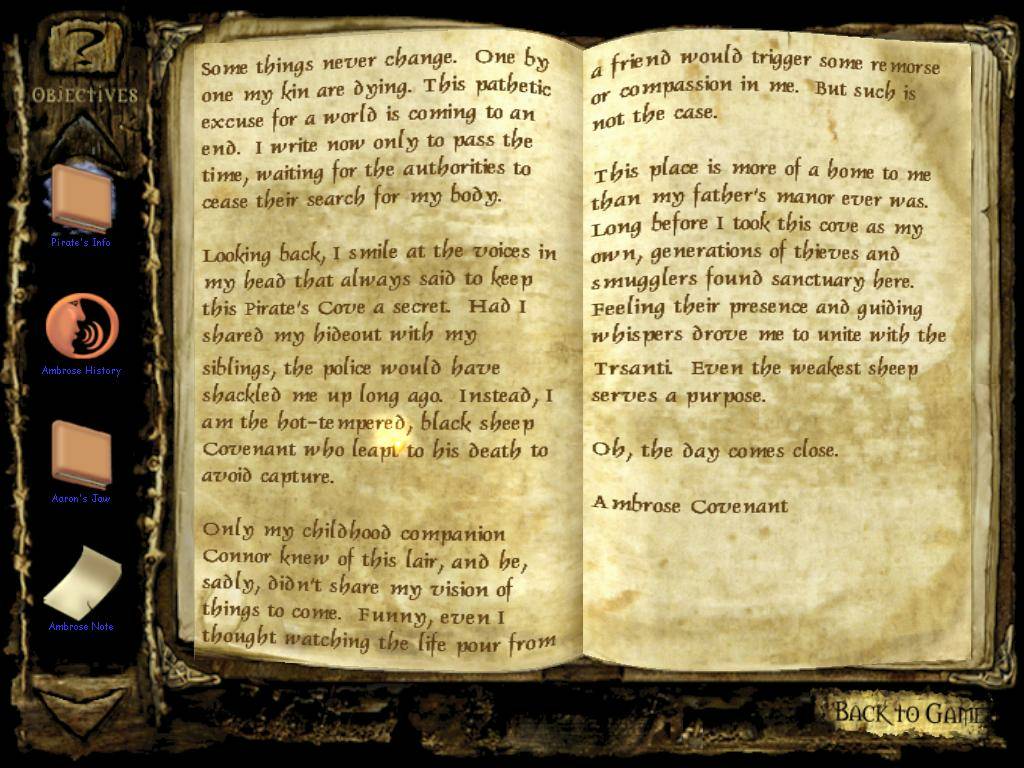 ?
OBJECTIVES
Pirate's Info
Ambrose History
Aaron's Jaw
Ambrose Note
Some things never change. One by
one my kin are dying. This pathetic
excuse for a world is coming to an
end. I write now only to pass the
time, waiting for the authorities to
cease their search for my body.
Looking back, I smile at the voices in
my head that always said to keep
this Pirate's Cove a secret. Had I
shared my hideout with my
siblings, the police would have
shackled me up long ago. Instead, I
am the hot-tempered, black sheep
Covenant who leapt to his death to
avoid capture.
Only my childhood companion
Connor knew of this lair, and he,
sadly, didn't share my vision of
things to come. Funny, even I
thought watching the life pour from
a friend would trigger some remorse
or compassion in me. But such is
not the case.
This place is more of a home to me
than my father's manor ever was.
Long before I took this cove as my
own, generations of thieves and
smugglers found sanctuary here.
Feeling their presence and guiding
whispers drove me to unite with the
Trsanti. Even the weakest sheep
serves a purpose.
Oh, the day comes close.
Ambrose Covenant
BACK TO GAME